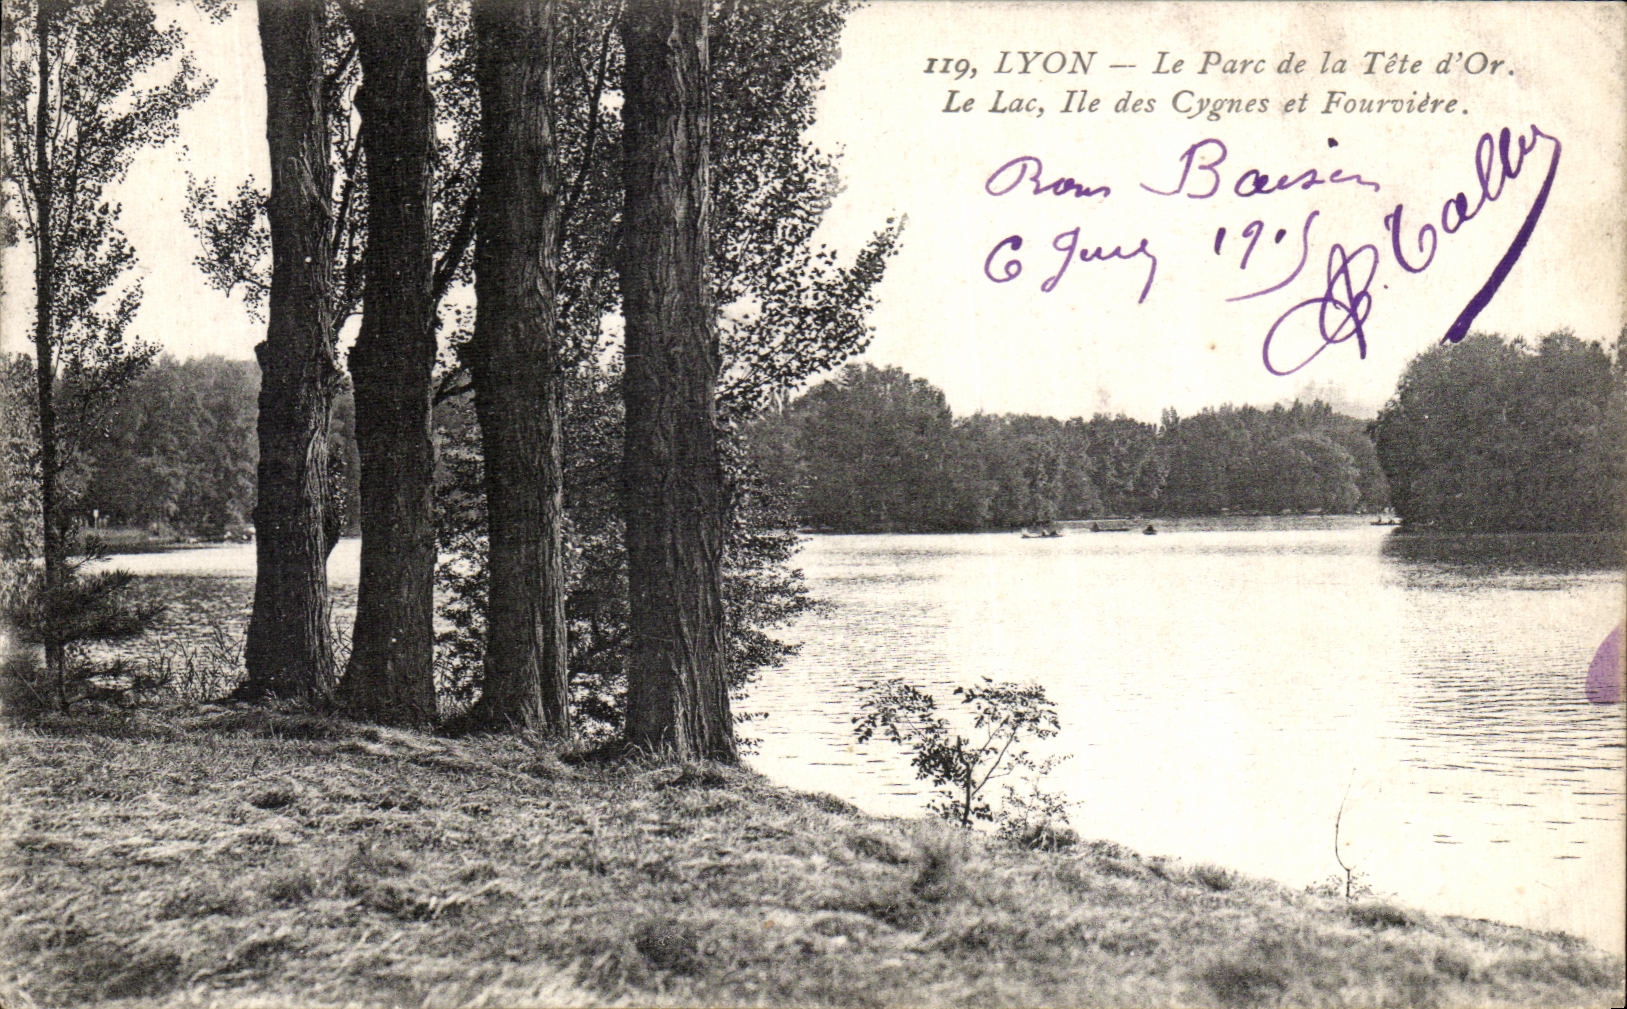 119, LYON — Le Parc de la Tête d'Or.
Le Lac, Ile des Cygnes et Fourvière.
Bons Baisers
6 1915